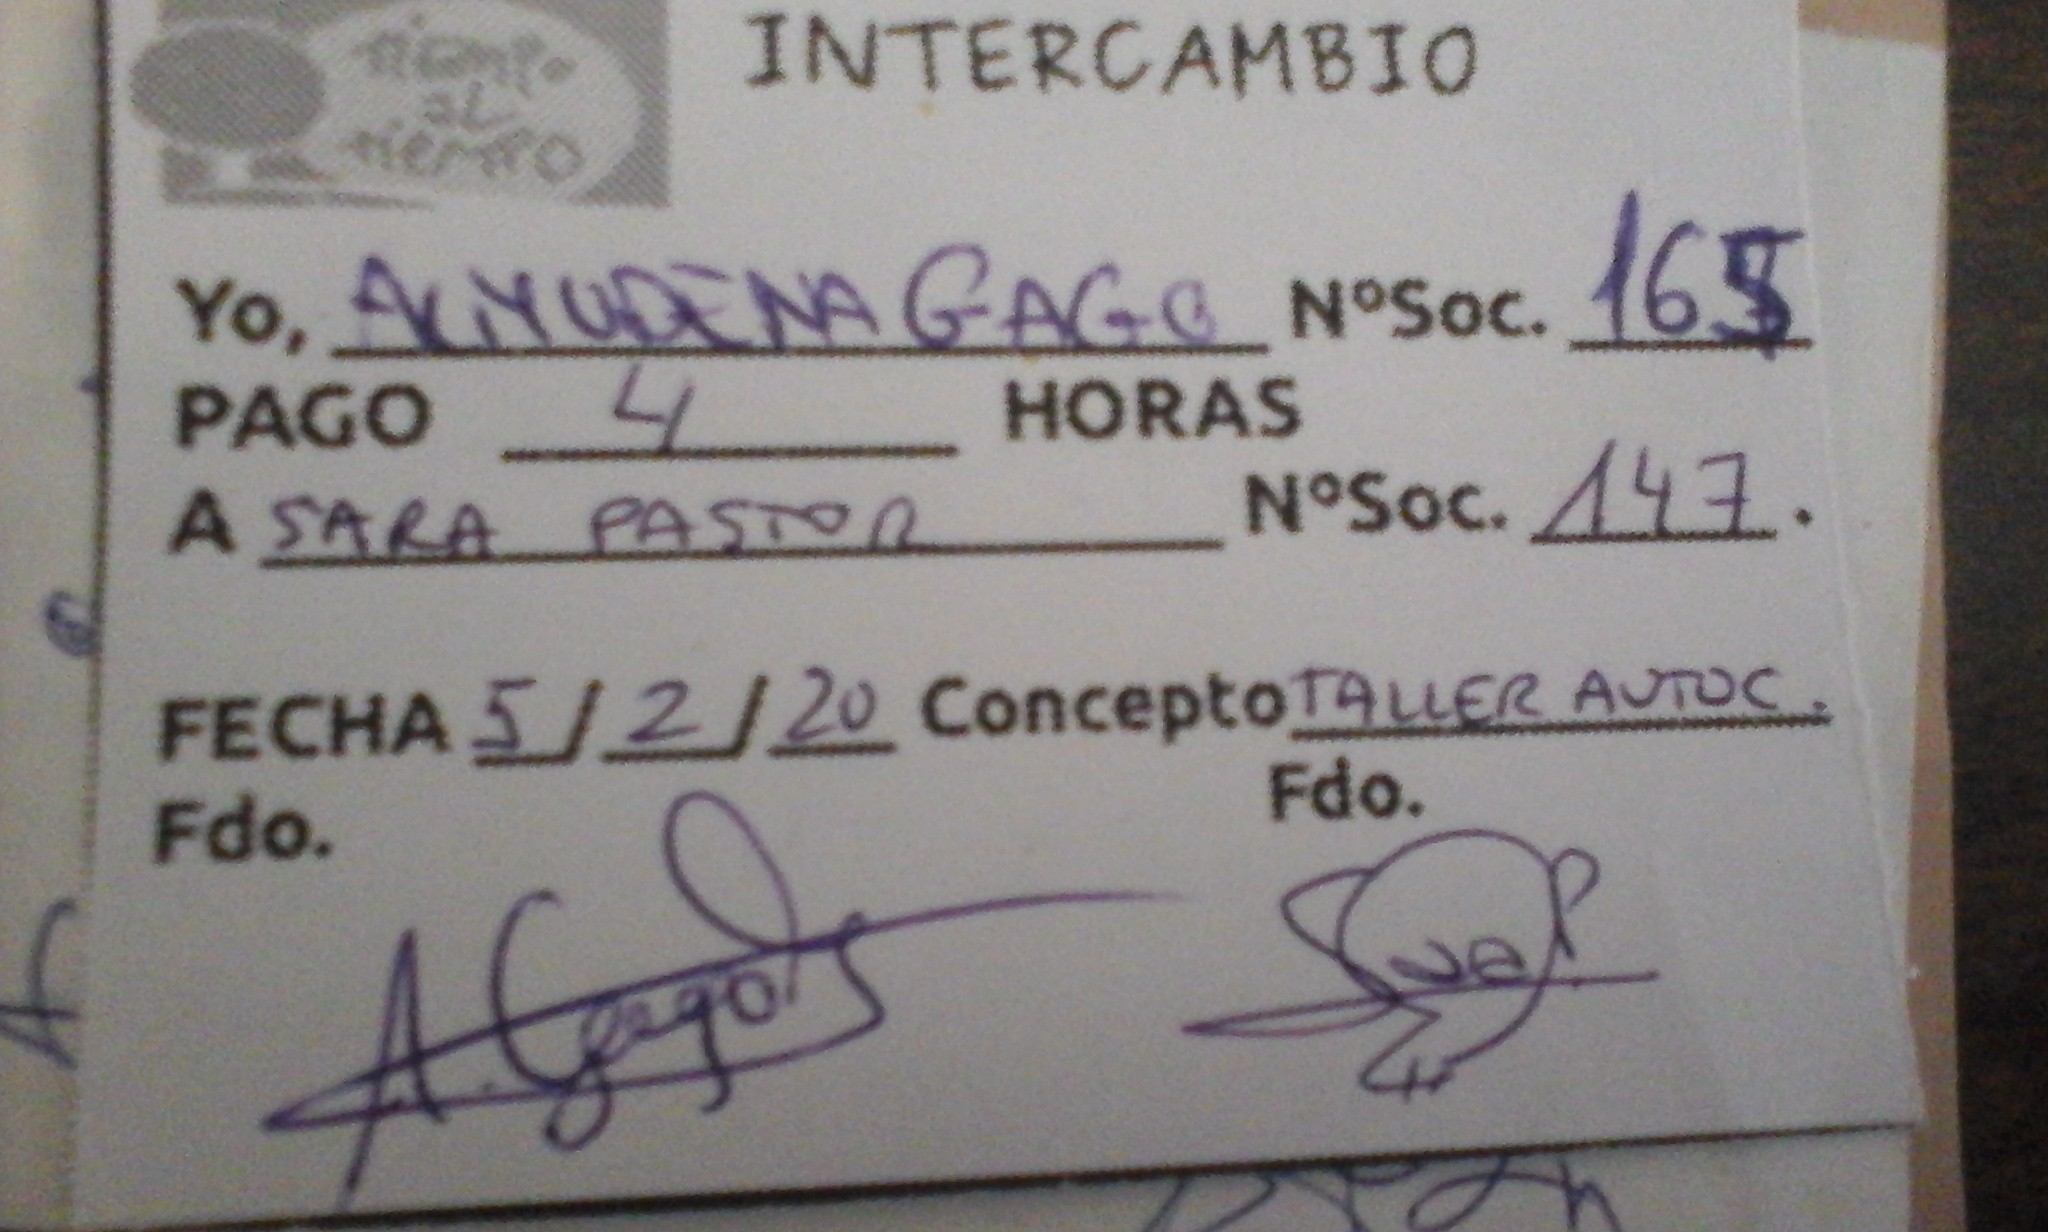 tiempo
al
tiempo
INTERCAMBIO
Yo, ALMUDENA GAGO NºSoc. 165
PAGO 4 HORAS
A SARA PASTOR NºSoc. 147.
FECHA 5/2/20 Concepto TALLER AUTOC.
Fdo. Fdo.
A. Gago